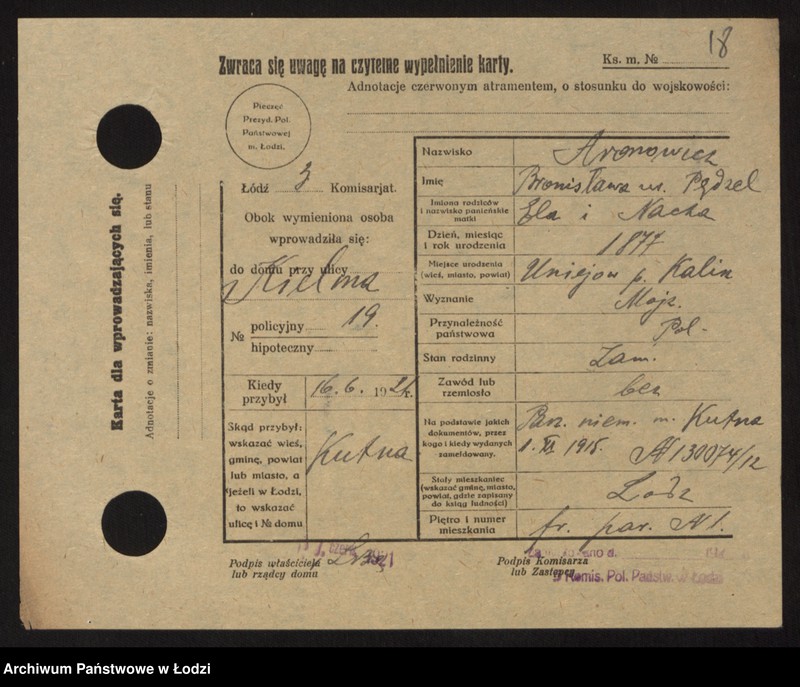 18
Zwraca się uwagę na czytelne wypełnienie karty.
Ks. m. №
Adnotacje czerwonym atramentem, o stosunku do wojskowości:
Pieczęć
Prezyd. Pol.
Państwowej
m. Łodzi.
Łódź 3 Komisarjat.
Obok wymieniona osoba
wprowadziła się:
do domu przy ulicy
Kielma
№ policyjny 19.
hipoteczny
Kiedy przybył 16.6. 1921 r.
Skąd przybył:
wskazać wieś,
gminę, powiat
lub miasto, a
jeżeli w Łodzi,
to wskazać
ulicę i № domu
Kutna
Podpis właściciela
lub rządcy domu
Nazwisko Aronowicz
Imię Bronisława ur. Pądzel
Imiona rodziców
i nazwisko panieńskie
matki
Ela i Nacha
Dzień, miesiąc
i rok urodzenia
1877
Miejsce urodzenia
(wieś, miasto, powiat)
Uniejow p. Kalin
Wyznanie Mojż.
Przynależność
państwowa
Pol.
Stan rodzinny Zam.
Zawód lub
rzemiosło
bez
Na podstawie jakich
dokumentów, przez
kogo i kiedy wydanych
zameldowany.
Pasz. niem. m. Kutna
1. XI 1915. № 130074/12
Stały mieszkaniec
(wskazać gminę, miasto,
powiat, gdzie zapisany
do ksiąg ludności)
Lodz
Piętro i numer
mieszkania
fr. par. № 1.
Podpis Komisarza
lub Zastępcy
Komis. Pol. Państw. w Łodzi
Karta dla wprowadzających się.
Adnotacje o zmianie: nazwiska, imienia, lub stanu
Archiwum Państwowe w Łodzi